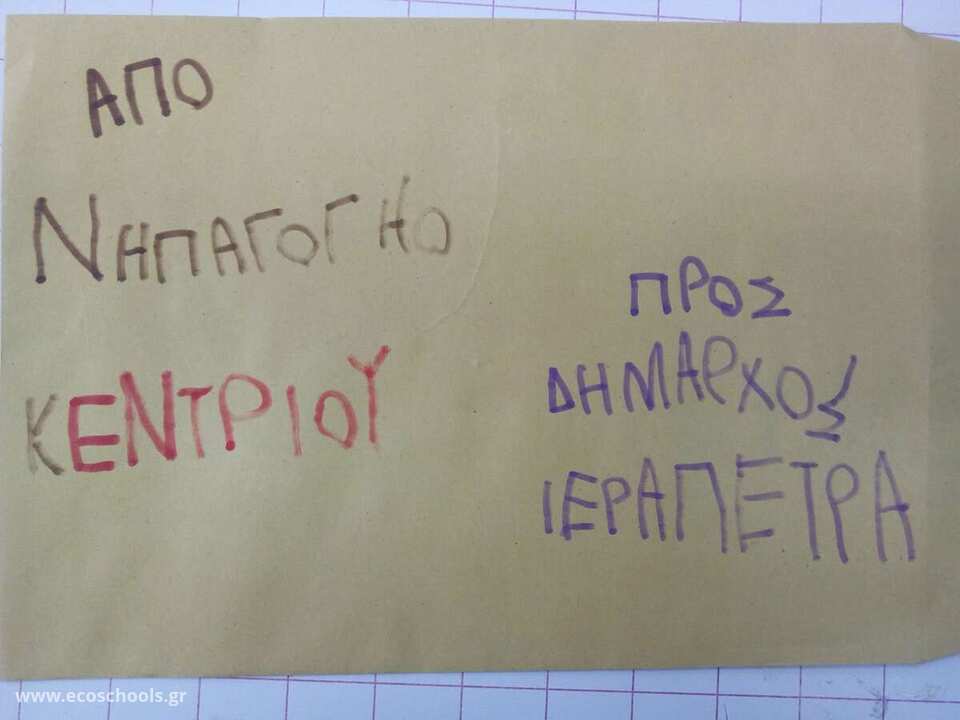 ΑΠΟ
ΝΗΠΑΓΟΓΗΟ
ΚΕΝΤΡΙΟΥ
ΠΡΟΣ
ΔΗΜΑΡΧΟΣ
ΙΕΡΑΠΕΤΡΑ
www.ecoschools.gr